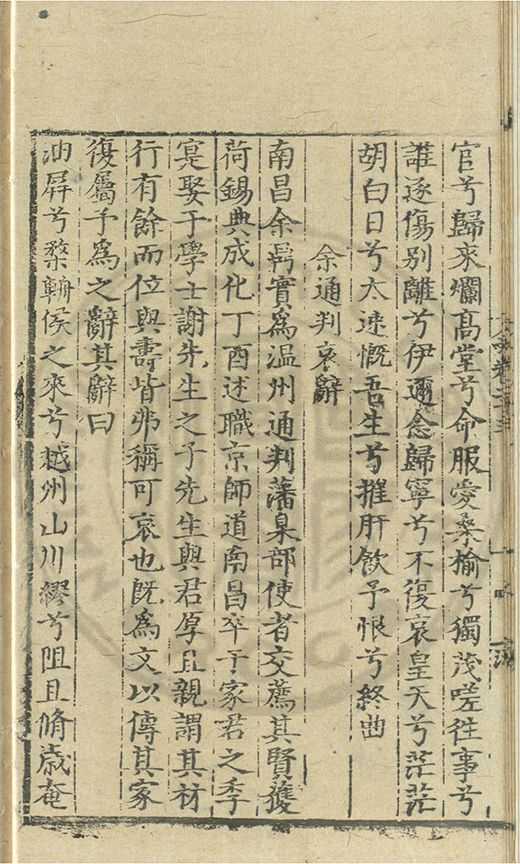 官兮歸來爛高堂兮命服愛桑榆兮獨茂嗟往事兮
誰逐傷别離兮伊邇念歸寧兮不復哀皇天兮茫茫
胡白日兮太速慨吾生兮摧肝飲予恨兮終曲
余通判哀辭
南昌余禼實為温州通判藩臬部使者交薦其賢獲
荷錫典成化丁酉述職京師道南昌卒于家君之季
寔娶于學士謝先生之子先生與君厚且親謂其材
行有餘而位與壽皆弗稱可哀也既為文以傳其家
復屬予為之辭其辭曰
油屏兮棨輧侯之來兮越州山川繆兮阻且脩歳奄